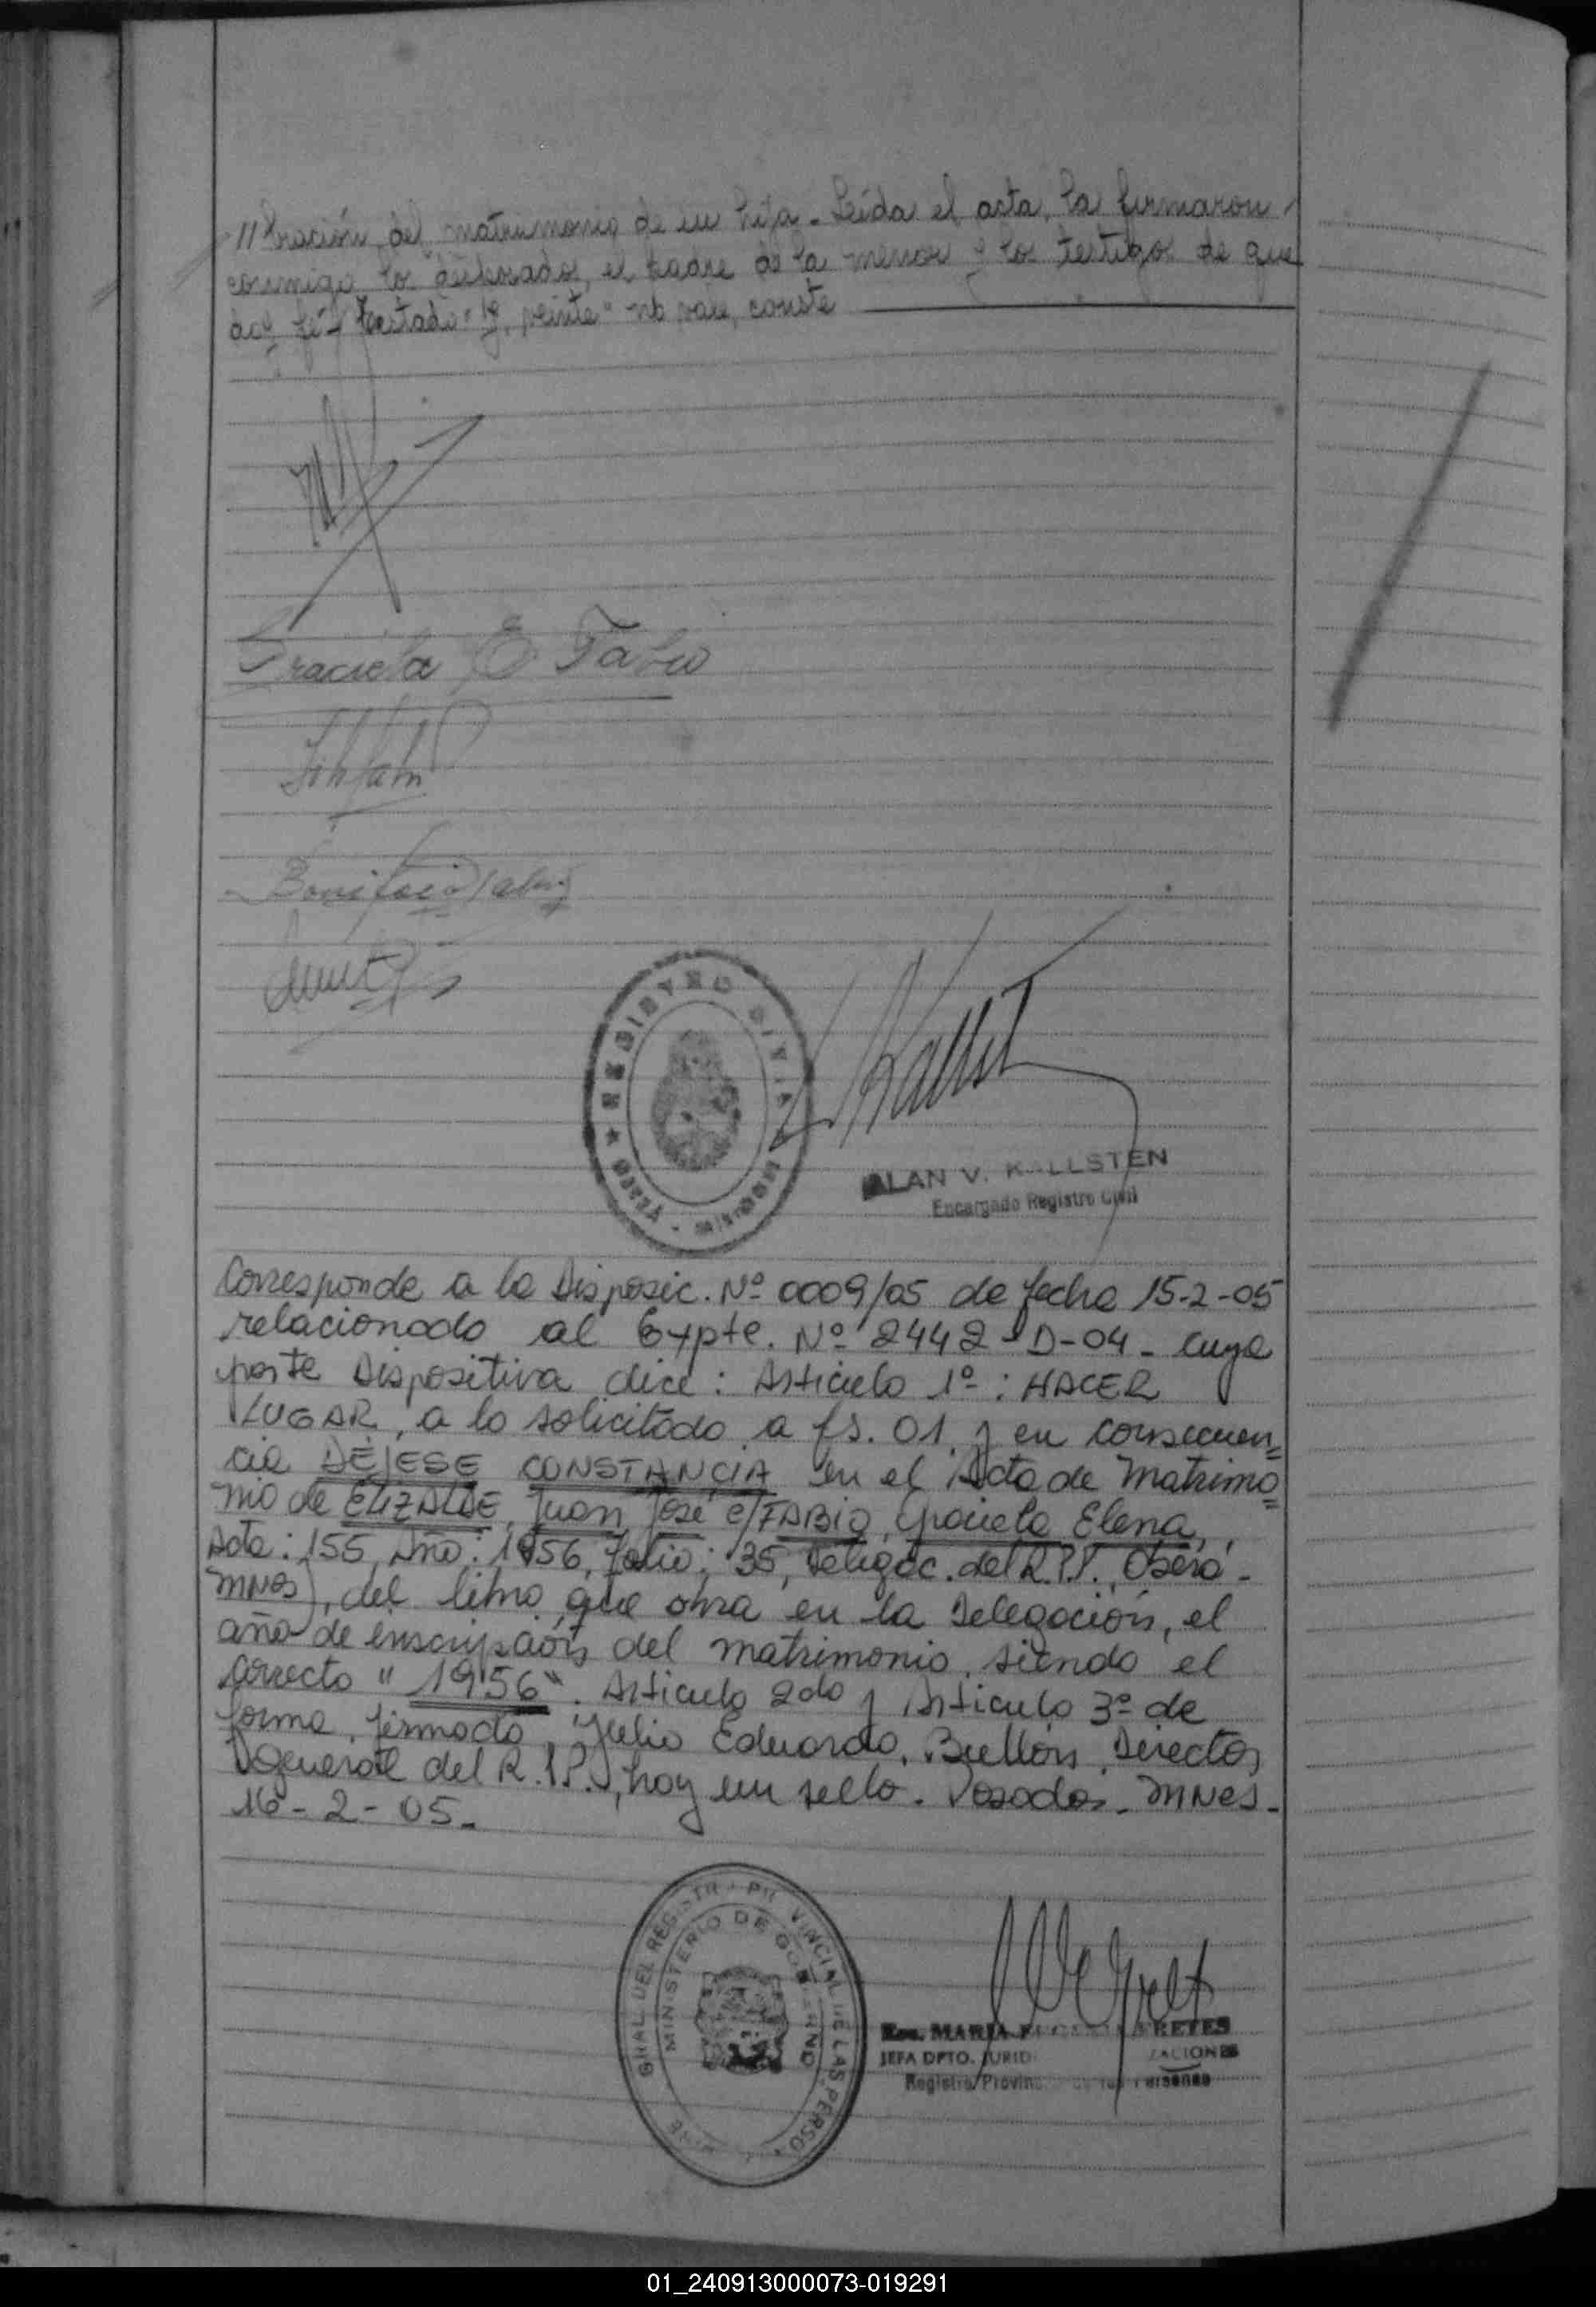 //bración del matrimonio de su hija - Leída el acta, la firmaron
conmigo los declarados, el padre de la menor y los testigos de que
doy fé - Testado: " no vale, conste
Graciela E Fabio
Bonifacio
REGISTRO CIVIL
ALAN V. KALLSTEN
Encargado Registro Civil
Corresponde a la Disposic. Nº 0009/05 de fecha 15-2-05
relacionado al Expte. Nº 2442-D-04 - cuya
parte Dispositiva dice: Articulo 1º: HACER
LUGAR, a lo solicitado a fs. 01 y en consecuen=
cia DÉJESE CONSTANCIA en el Acta de Matrimo=
nio de ELIZALDE, Juan José c/FABIO, Graciela Elena,
Acta: 155, Año: 1956, folio: 35, Delegac. del R.P.P., Oberá -
MNES), del libro que obra en la Delegación, el
año de inscripción del matrimonio, siendo el
correcto " 1956". Articulo 2do y Articulo 3º de
forma, firmado Julio Eduardo, Bullón, Director
General del R.P.P., hay un sello. Posadas - MNES -
16 - 2 - 05 -
GRAL DEL REGISTR PROVINCIAL DE LAS PERSO
MINISTERIO DE GOBIERNO
MARIA EUGENIA FRETES
JEFA DPTO. JURID ZACIONES
Registro Provin de las Personas
01_240913000073-019291